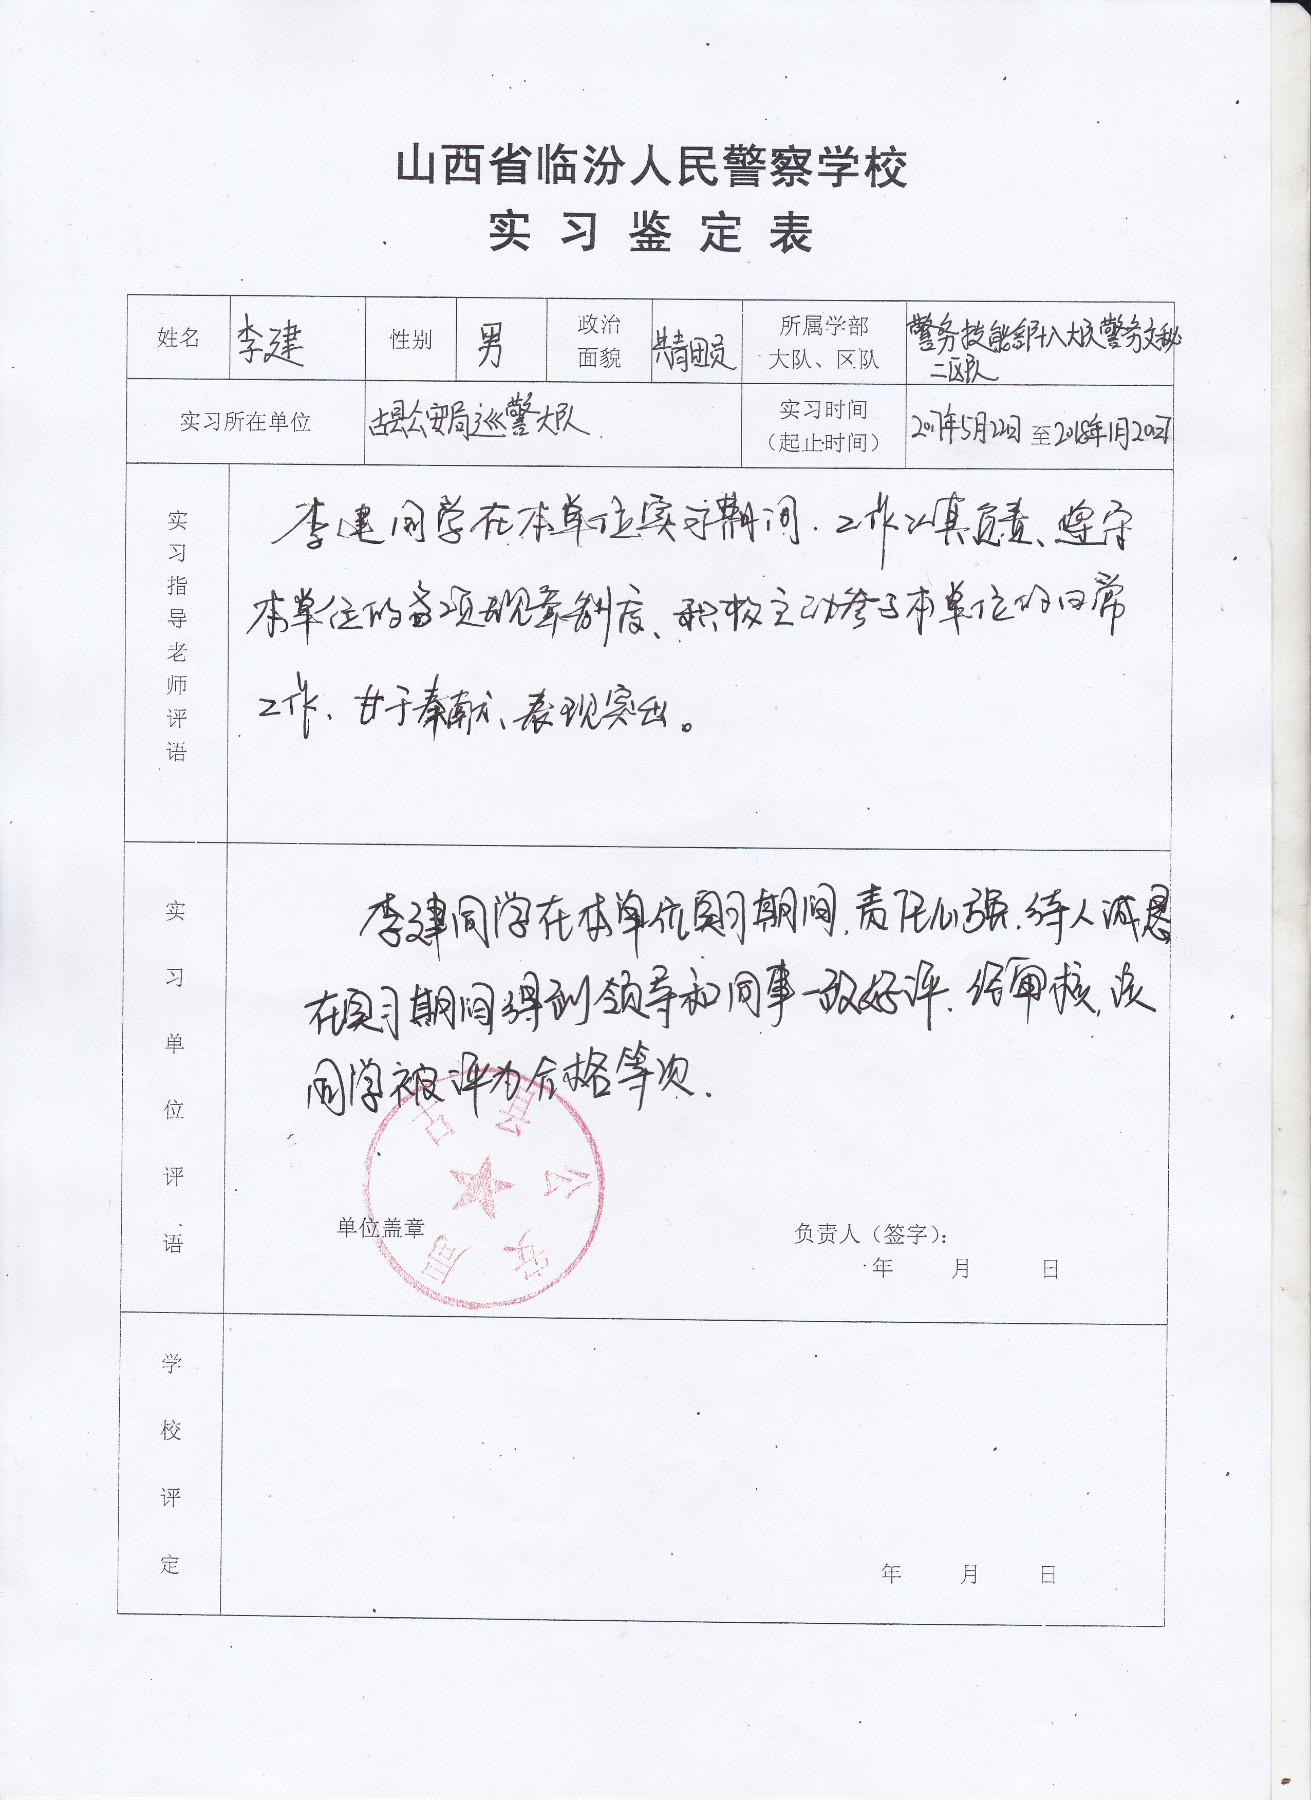 山西省临汾人民警察学校
实习鉴定表
姓名 李建 性别 男 政治面貌 共青团员 所属学部大队、区队 警务技能部十八大队警务文秘二区队
实习所在单位 古县公安局巡警大队 实习时间（起止时间） 2017年5月22日 至 2018年1月20日
实习指导老师评语
李建同学在本单位实习期间．工作认真负责、遵守
本单位的各项规章制度、积极主动参与本单位的日常
工作、甘于奉献、表现突出。
实习单位评语
李建同学在本单位实习期间，责任心强．待人诚恳
在实习期间得到领导和同事一致好评．经审核，该
同学被评为合格等次．
古县公安局
单位盖章
负责人（签字）：
年 月 日
学校评定
年 月 日